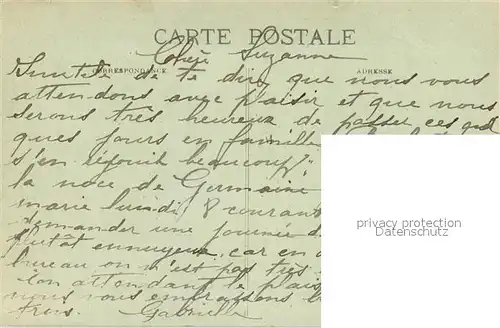 CARTE POSTALE
Chère Suzanne
CORRESPONDANCE
ADRESSE
Inutile de te dire que nous vous
attendons avec plaisir et que nous
serons très heureux de passer ces quel
ques jours en famille
s'en réjouit beaucoup
la noce de Germaine
marie lundi 8 courant
demander une journée d
plutôt ennuyeux car en
bureau on n'est pas très
En attendant le plais
nous vous embrassons
trois. Gabrielle
privacy protection
Datenschutz